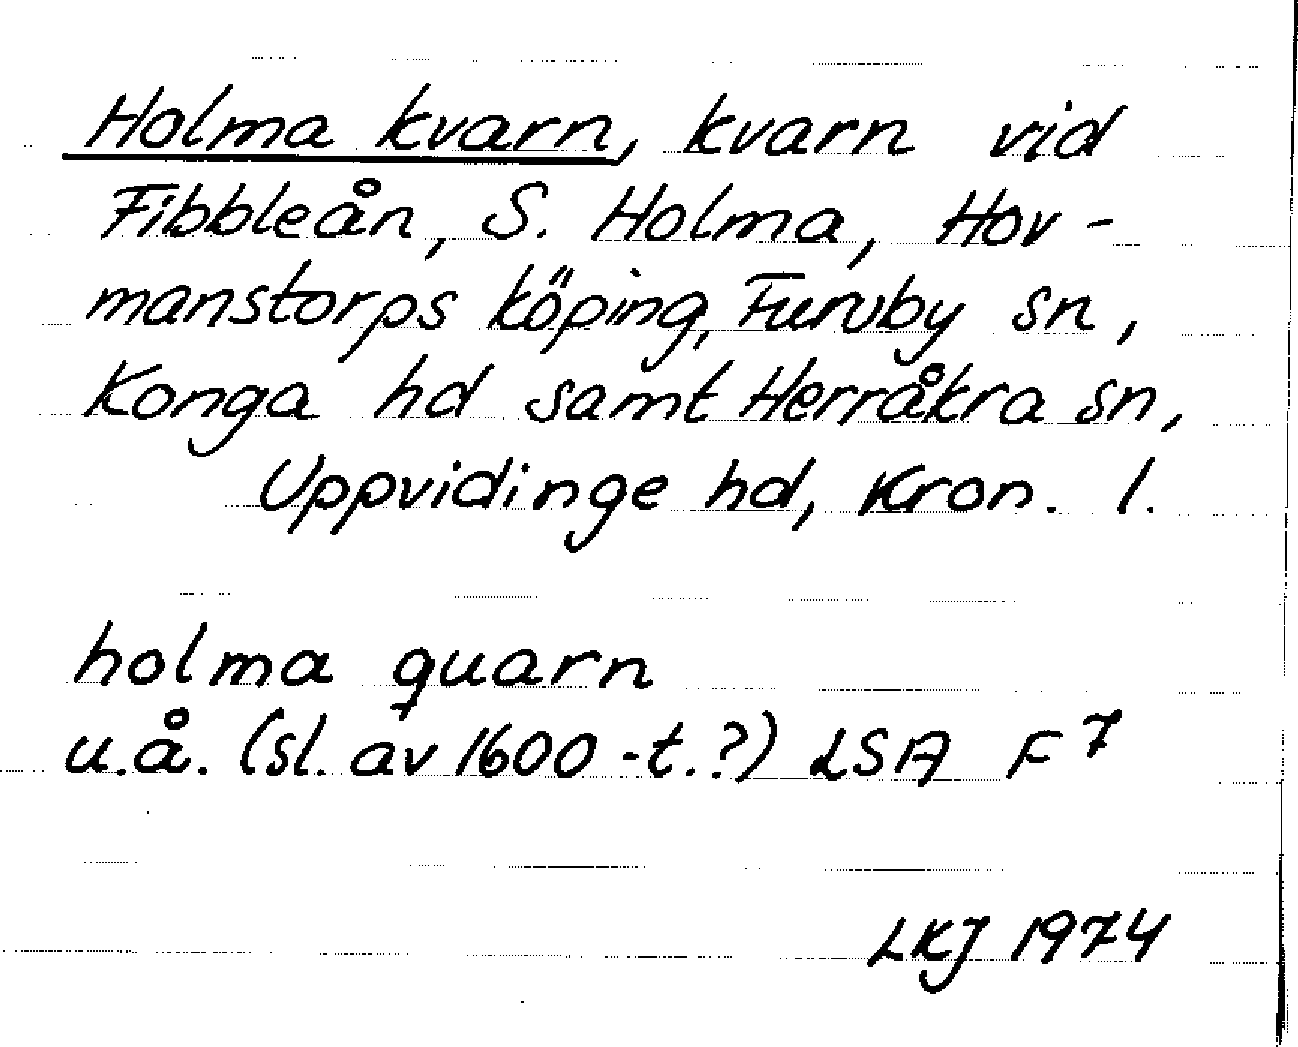 Holma kvarn, kvarn vid
Fibbleån, S. Holma, Hov-
manstorps köping, Furuby sn,
Konga hd samt Herråkra sn,
Uppvidinge hd, Kron. l.
holma quarn
u.å. (sl. av 1600-t.?) LSA F7
LKJ 1974